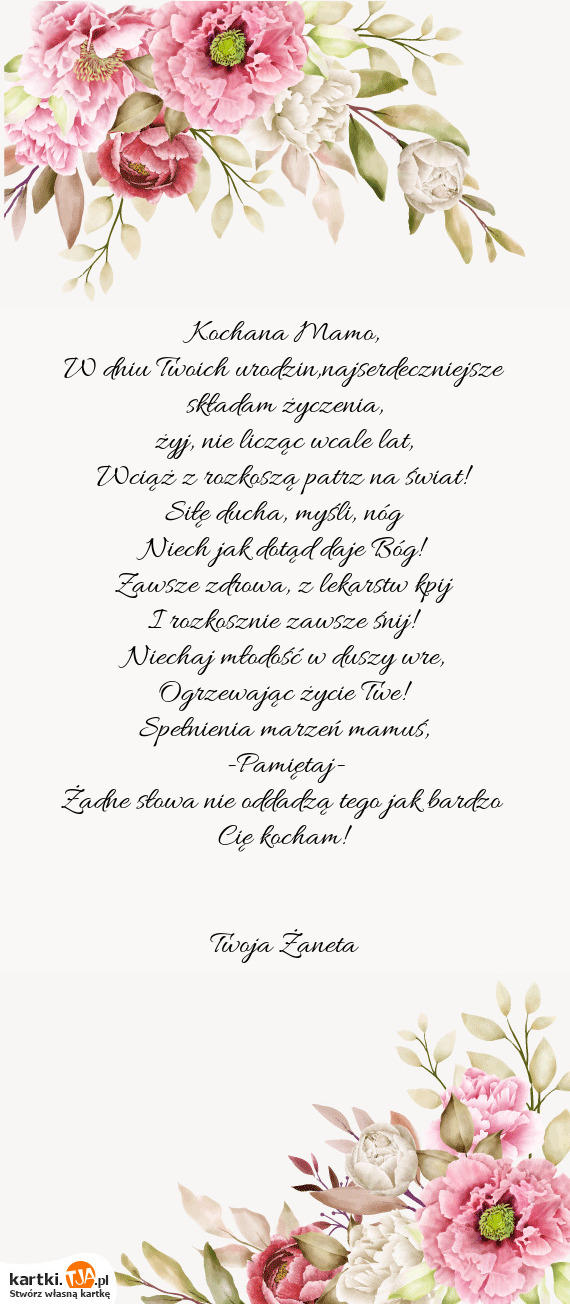 Kochana Mamo,
W dniu Twoich urodzin,najserdeczniejsze
składam życzenia,
żyj, nie licząc wcale lat,
Wciąż z rozkoszą patrz na świat!
Siłę ducha, myśli, nóg
Niech jak dotąd daje Bóg!
Zawsze zdrowa, z lekarstw kpij
I rozkosznie zawsze śnij!
Niechaj młodość w duszy wre,
Ogrzewając życie Twe!
Spełnienia marzeń mamuś,
-Pamiętaj-
Żadne słowa nie oddadzą tego jak bardzo
Cię kocham!
Twoja Żaneta
kartki.TJA.pl
Stwórz własną kartkę